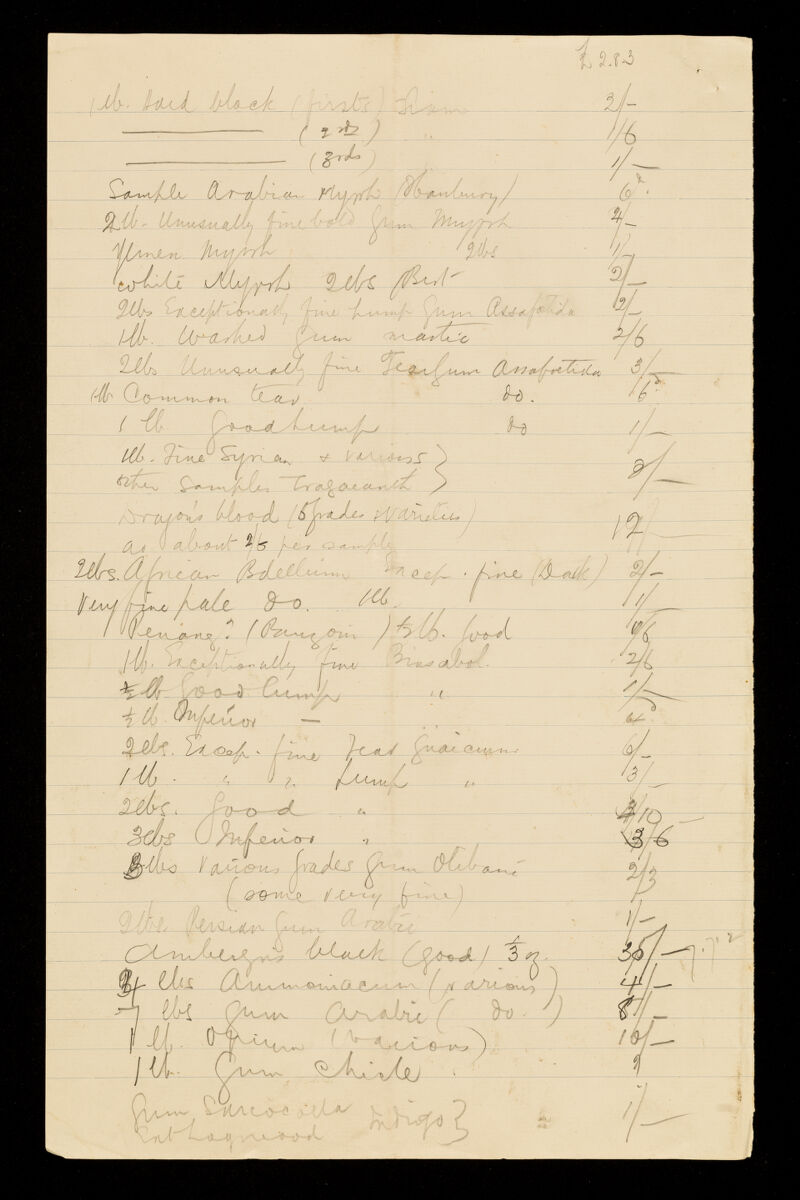 £ 2.8.3
1 lb. Hard black (firsts) 2/-
(2nds) " 1/6
(3rds) 1/-
Sample Arabian Myrrh (Hanbury) 6d.
2 lb. Unusually fine bold Gum Myrrh 4/-
Yemen Myrrh 2lbs 1/-
White Myrrh 2lbs Best 2/-
2lbs Exceptionally fine lump Gum Assafoetida 2/-
1lb. Washed Gum mastic 2/6
2lbs Unusually fine Tear Gum Assafoetida 3/-
1lb Common tear do. 6d
1 lb Good Lump do 1/-
1lb. Fine Syrian & various }
other samples Tragacanth }
Dragon's blood (5 grades & varieties) 12/-
as about 2/5 per sample
2lbs. African Bdellium Excep. fine (Dark) 2/-
Very fine pale do. 1lb. 1/-
Penang? ( ) ½lb. Good 1/6
1lb. Exceptionally fine Bissabol. 2/6
½ lb Good Lump " 1/-
½ lb. Inferior —
2lbs. Excep. fine Tear Guaicum 6/-
1 lb. " " Lump " 3/-
2lbs. Good " /10
3lbs Inferior " 3/6
3lbs Various Grades Gum Olibani 2/3
(some very fine)
2lbs Persian Gum Arabic 1/-
Ambergris black (good) ⅓ oz. 35/- 7.7.2
lbs Ammoniacum (various) 4/-
7 lbs Gum Arabic ( do. ) 8/-
1 lb. Opium (various) 10/-
1 lb. Gum Chicle . 2
Gum Sarcocolla Indigo } 1/-
Ext Logwood